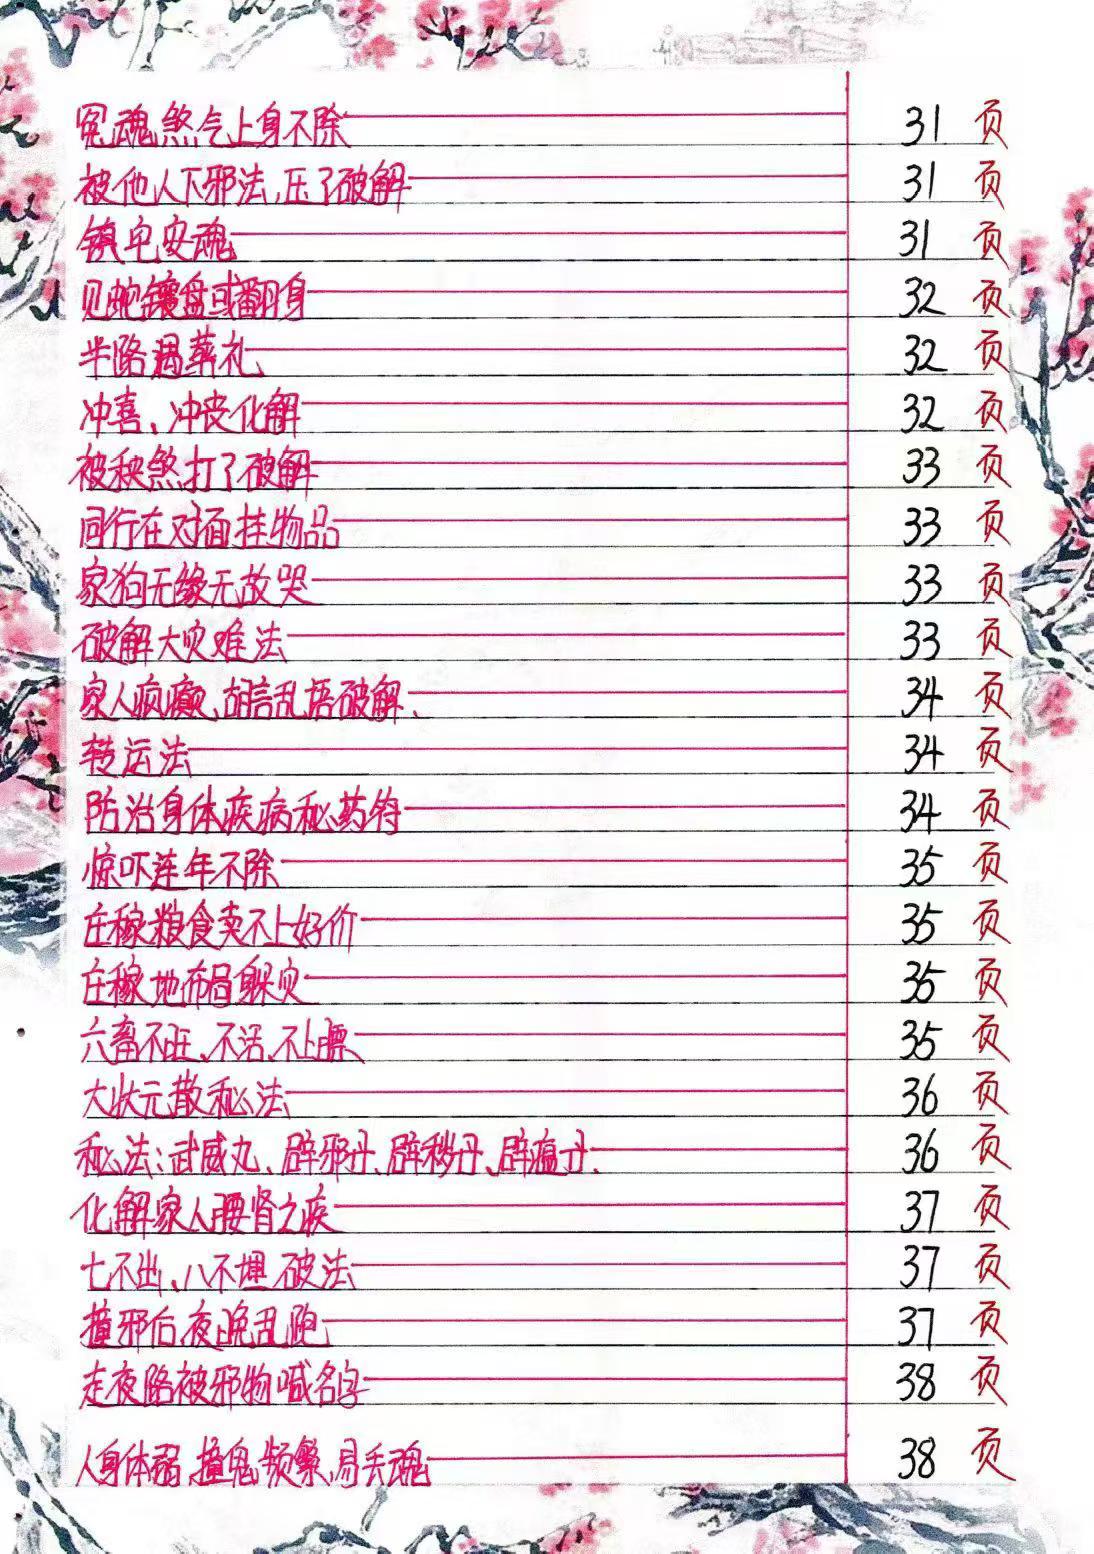 冤魂煞气上身不除 31页
被他人下邪法,压了破解 31页
镇宅安魂 31页
见蛇镬盘或翻身 32页
半路遇葬礼 32页
冲喜、冲丧化解 32页
被秧煞打了破解 33页
同行在对面挂物品 33页
家狗无缘无故哭 33页
破解大灾难法 33页
家人疯癫、胡言乱语破解、 34页
转运法 34页
防治身体疾病秘药符 34页
惊吓连年不除 35页
庄稼粮食卖不上好价 35页
庄稼地布局躲灾 35页
六畜不旺、不活、不上膘 35页
大状元散秘法 36页
秘法:武威丸、辟邪丹、辟秽丹、辟瘟丹、 36页
化解家人腰肾之疾 37页
七不出、八不埋 破法 37页
撞邪后,夜晚乱跑 37页
走夜路被邪物喊名字 38页
人身体弱,撞鬼频繁,易丢魂 38页